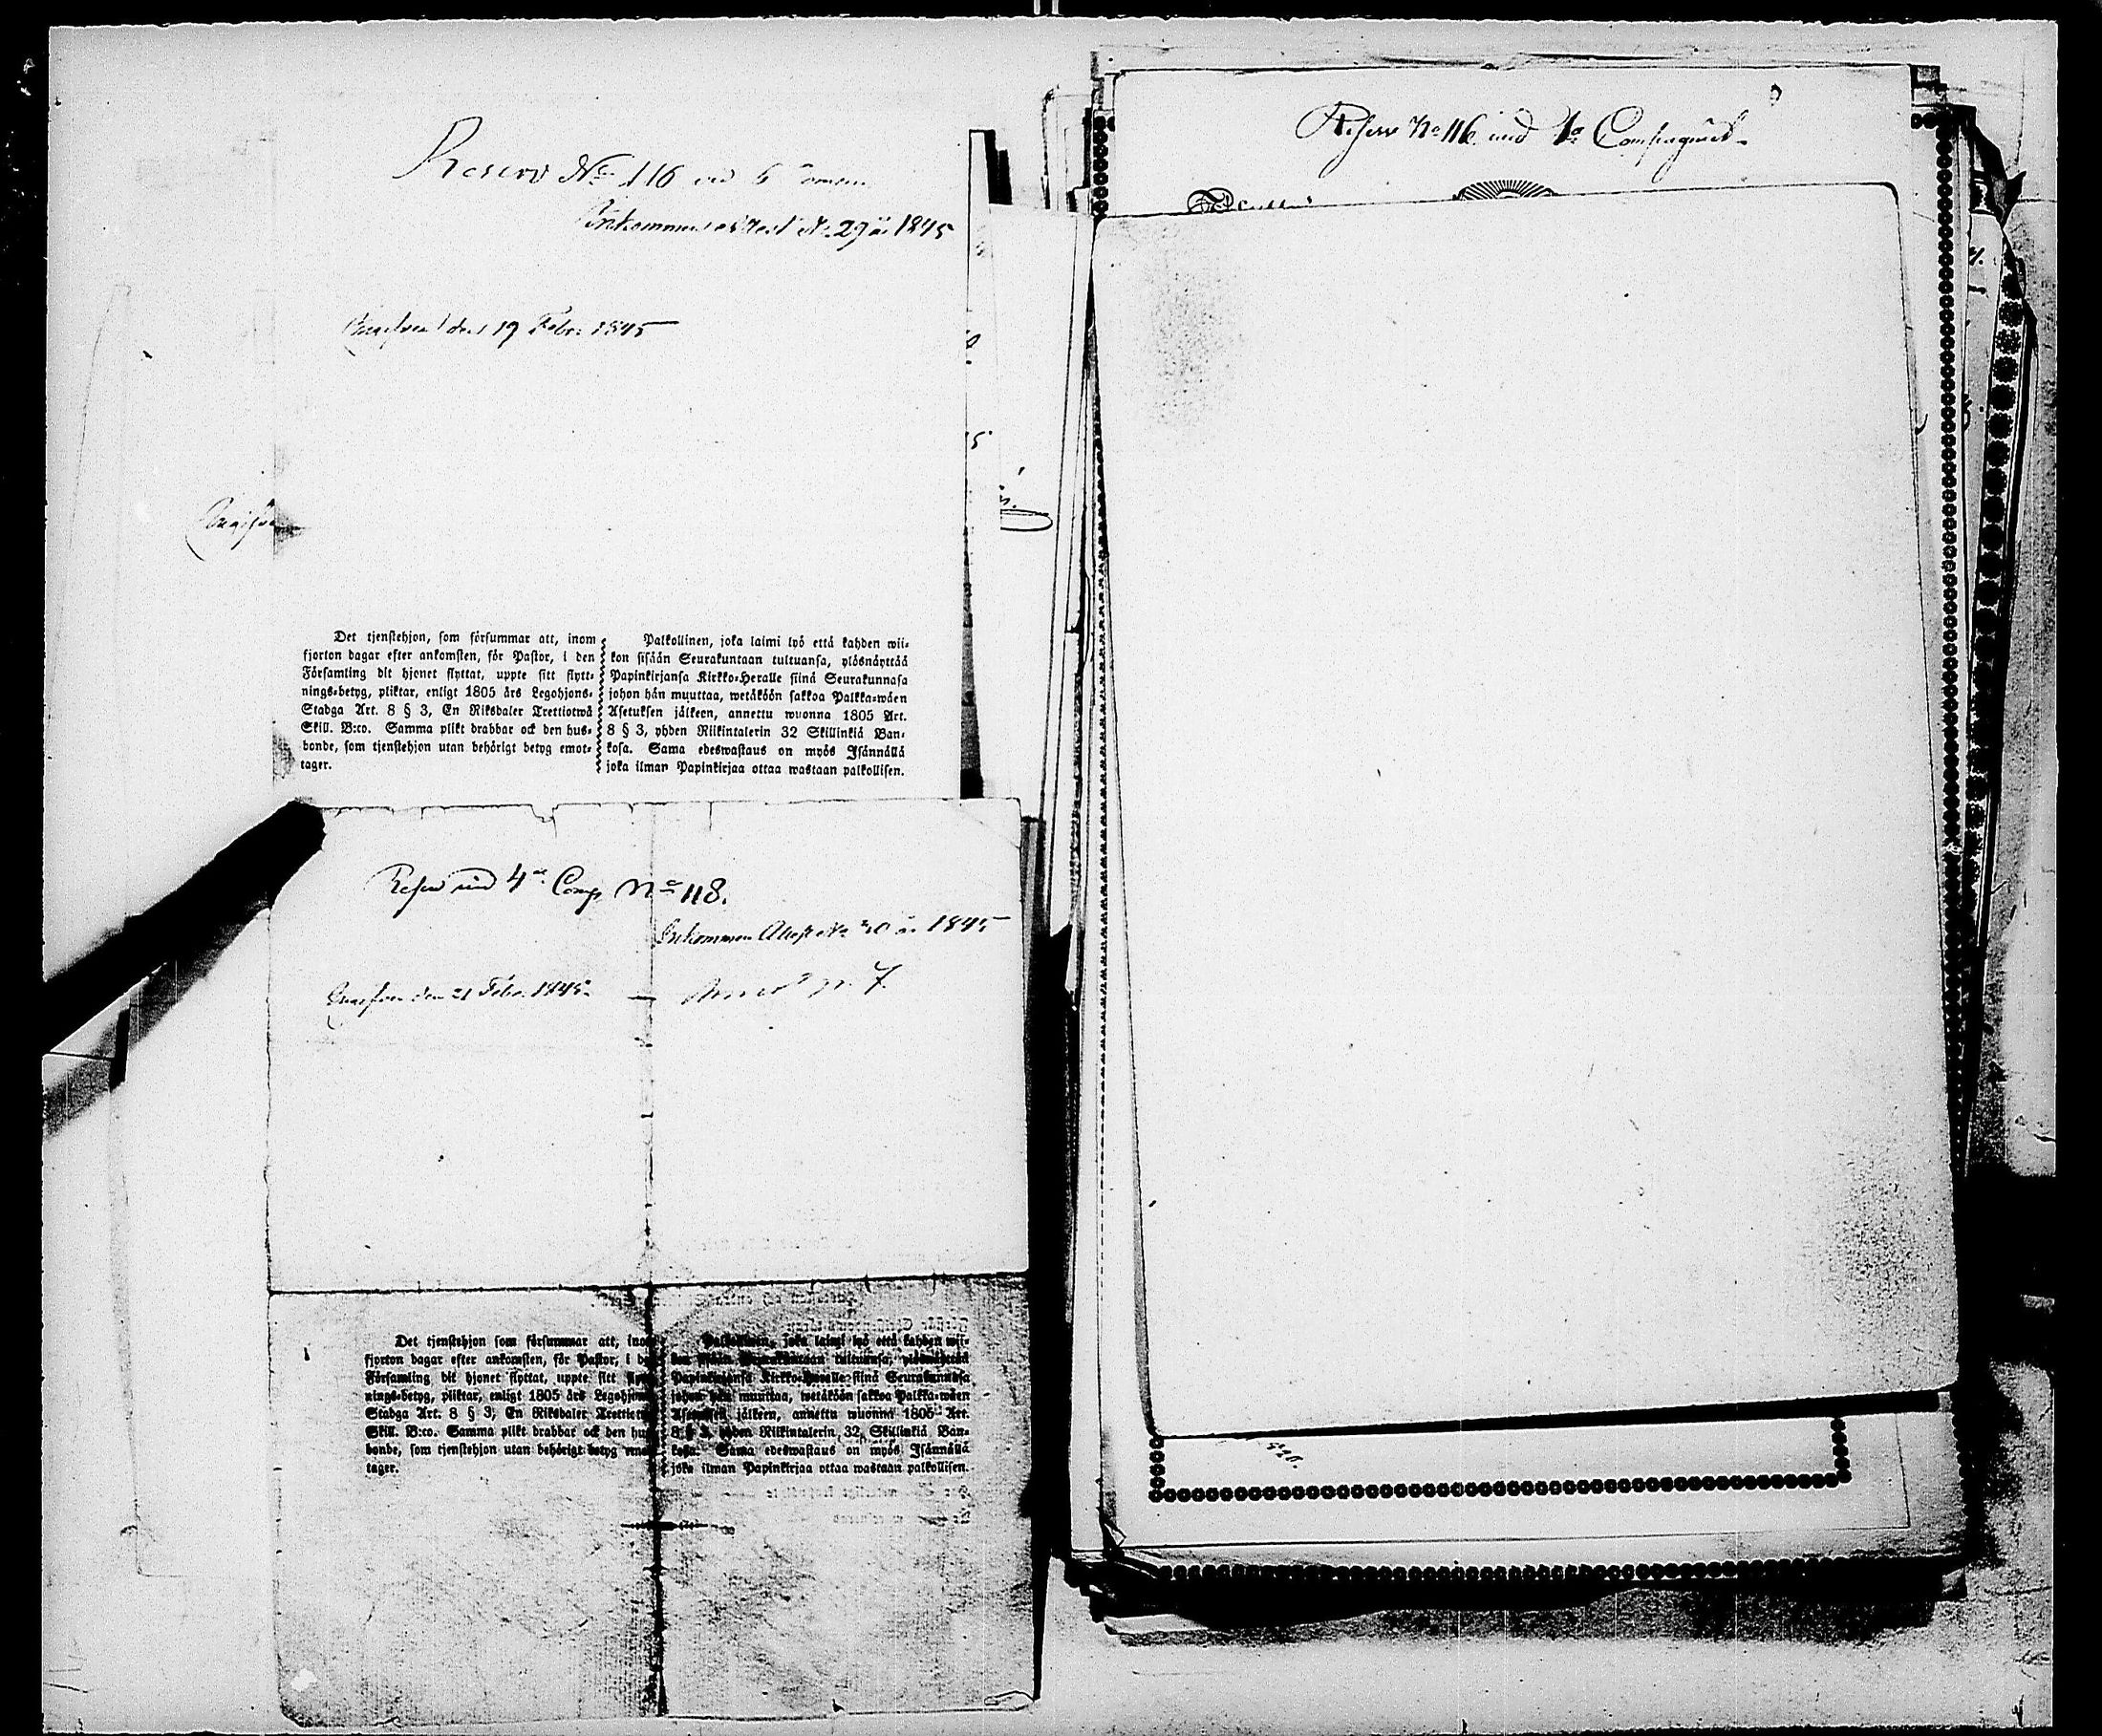 Reserv No 116 vid 6
Inkommen attest No 29 år 1845
den 19 Febr. 1845
Det tjenstehjon, som försummar att, inom
fjorton dagar efter ankomsten, för Pastor, i den
Församling dit hjonet flyttat, uppte sitt flytt-
nings-betyg, pliktar, enligt 1805 års Legohjons-
Stadga Art. 8 § 3, En Riksdaler Trettiotwå
Skill. B:co. Samma plikt drabbar ock den hus-
bonde, som tjenstehjon utan behörigt betyg emot-
tager.
Palkollinen, joka laimi lyö että kahden wii-
kon sisään Seurakuntaan tultuansa, ylösnäyttää
Papinkirjansa Kirkko-Heralle siinä Seurakunnasa
johon hän muuttaa, wetäköön sakkoa Palkka-wäen
Asetuksen jälkeen, annettu wuonna 1805 Art.
8 § 3, yhden Riikintalerin 32 Skillinkiä Ban-
kosa. Sama edeswastaus on myös Isännällä
joka ilman Papinkirjaa ottaa wastaan palkollisen.
Reserv vid 4de Comp No 118.
Inkommen Attest No 30 år 1845
den 21 Febr. 1845
Det tjenstehjon som försummar att,
fjorton dagar efter ankomsten, för Pastor, i
Församling dit hjonet flyttat, uppte sitt
nings-betyg, pliktar, enligt 1805 års
Stadga Art. 8 § 3, En Riksdaler
Skill. B:co. Samma plikt drabbar ock den
bonde, som tjenstehjon utan behörigt betyg
tager.
Palkollinen, joka laimi lyö että kahden wii-
kon sisään Seurakuntaan tultuansa, ylösnäyttää
Papinkirjansa Kirkko-Heralle siinä Seurakunnasa
johon hän muuttaa, wetäköön sakkoa Palkka-wäen
Asetuksen jälkeen, annettu wuonna 1805 Art.
8 § 3, yhden Riikintalerin 32 Skillinkiä Ban-
kosa. Sama edeswastaus on myös Isännällä
joka ilman Papinkirjaa ottaa wastaan palkollisen.
Reserv No 116 vid Compagniet